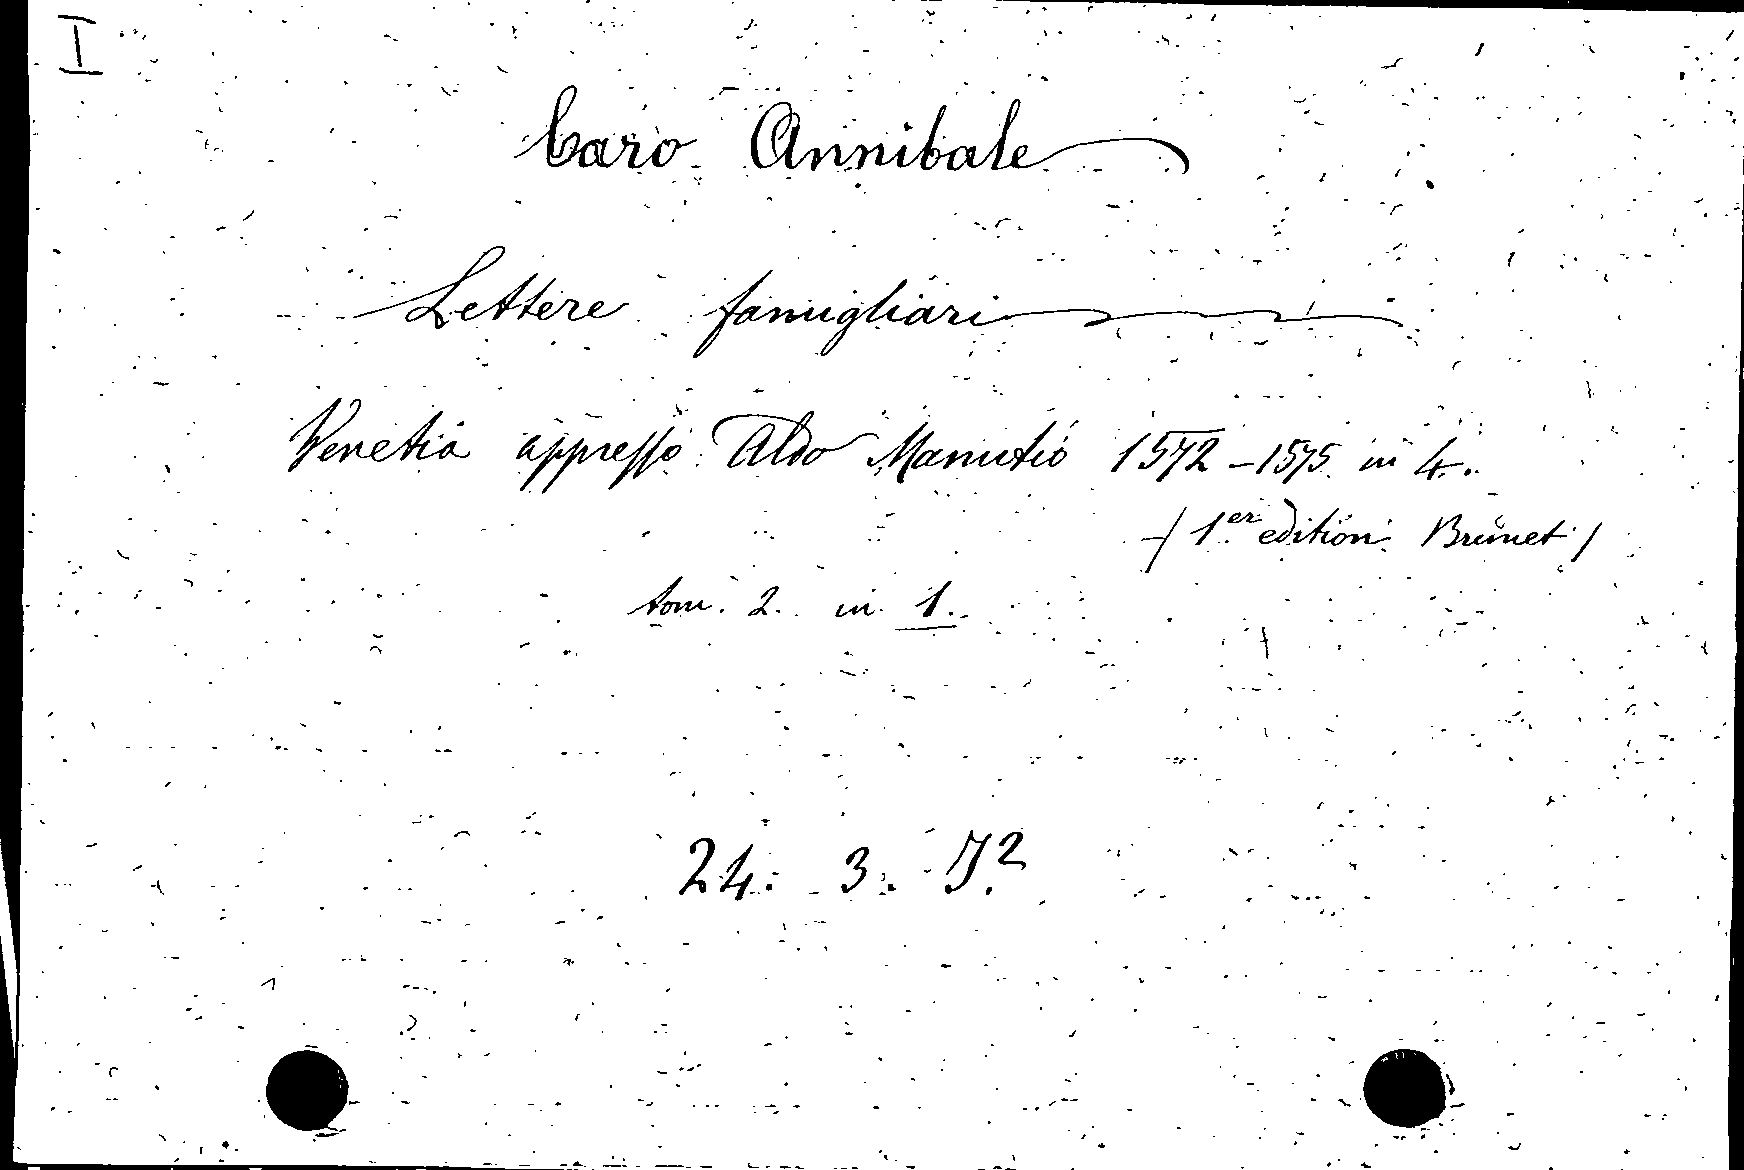 I
Caro Annibale
Lettere famigliari
Venetia appresso Aldo Manutio 1572-1575 in 4.
/ 1er edition Brunet /
tom. 2. in 1.
24. 3. J.2